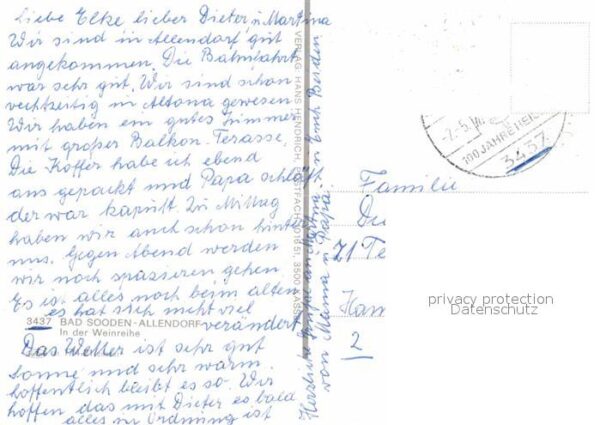 Liebe Elke lieber Dieter u. Martina
Wir sind in Allendorf gut
angekommen. Die Bahnfahrt
war sehr gut. Wir sind schon
rechtzeitig in Altona gewesen
Wir haben ein gutes Zimmer
mit großer Balkon-Terasse,
Die Koffer habe ich ebend
aus gepackt und Papa schläft
der war kaputt. Zu Mittag
haben wir auch schon hinter
uns. Gegen Abend werden
wir noch spazieren gehen.
Es ist alles noch beim alten
es hat sich nicht viel
verändert
3437 BAD SOODEN-ALLENDORF
In der Weinreihe
Das Wetter ist sehr gut
Sonne und sehr warm.
hoffentlich bleibt es so. Wir
hoffen das mit Dieter es bald
alles in Ordnung ist
VERLAG HANS HENDRICH, POSTFACH 3500 KASSEL
Herzliche Grüße an Martina u. Euch Beiden
von Mama u. Papa.
100 JAHRE HEIL
3437
Familie
Du
21 Te
Ham
2
privacy protection
Datenschutz